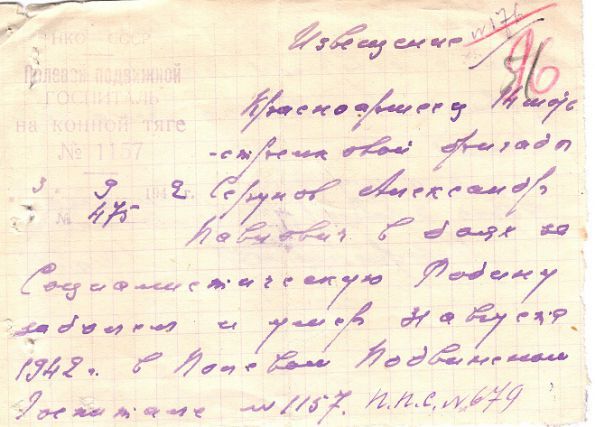 Извещение
№176
96
НКО СССР
Полевой подвижной
ГОСПИТАЛЬ
на конной тяге
№ 1157
3 9 1942 г.
№ 475
Красноармеец
-стрелковой бригады
Александр
Павлович в боях за
Социалистическую Родину
заболел и умер 31 августа
1942 г. в Полевом Подвижном
Госпитале №1157. П.П.С. №679